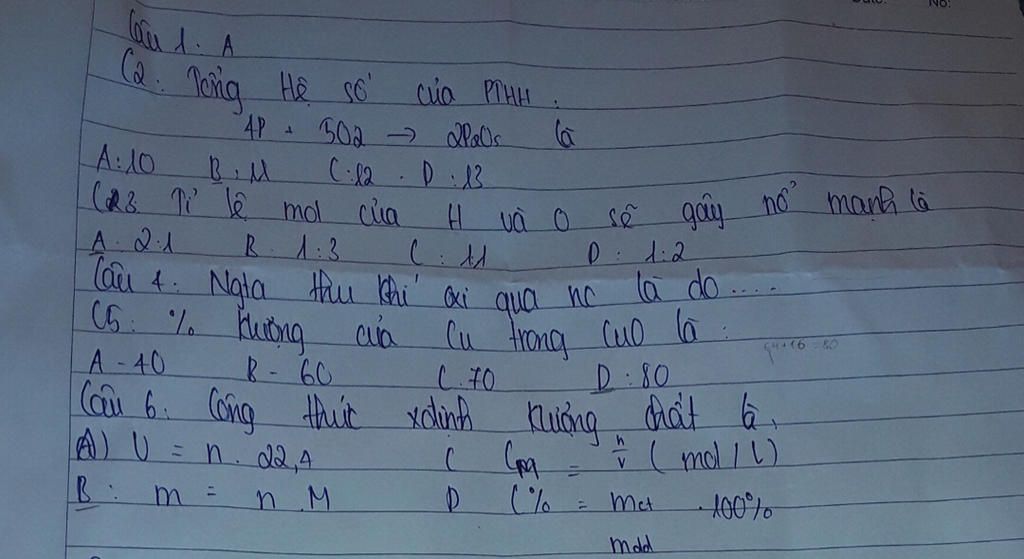 No:
Câu 1. A
C2. Tổng Hệ số của PTHH.
4P + 5O2 → 2P2O5 là
A:10 B:11 C:12. D:13
C3 Tỉ lệ mol của H và O sẽ gây nổ mạnh là
A. 2:1 B. 1:3 C: 1:1 D: 1:2
Câu 4: Ngta thu khí oxi qua nc là do....
C5: % kluợng của Cu trong CuO là:
64+16=80
A-40 B-60 C.70 D:80
Câu 6. Công thức xđịnh kluợng chất là,
A) V = n. 22,4 C CM = n/v (mol/l)
B: m = n.M D C% = mct/mdd .100%